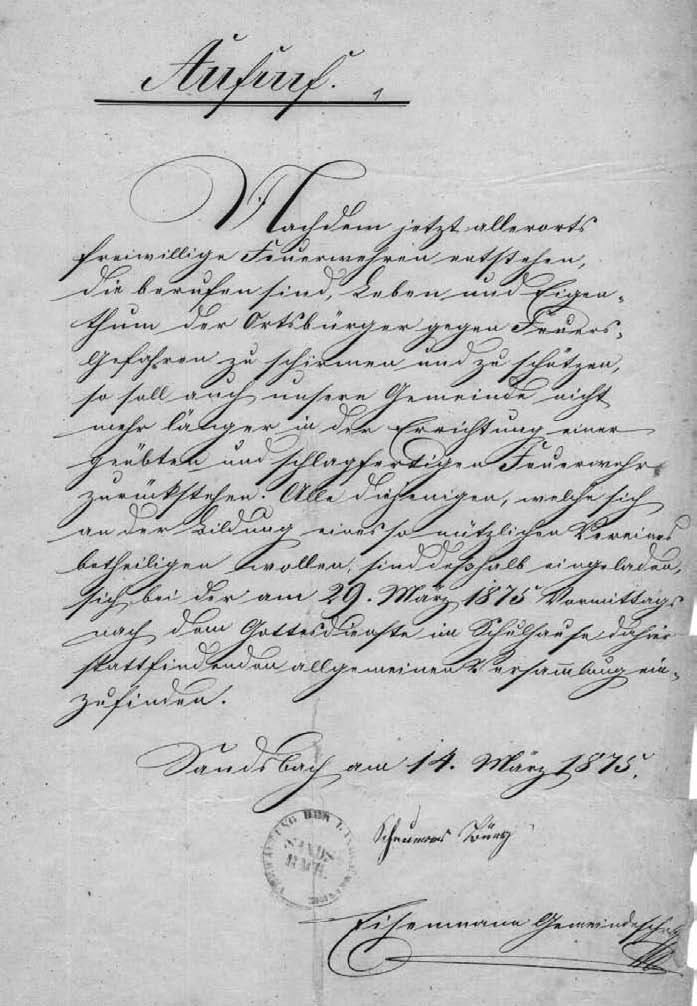 Aufruf.
1
Nachdem jetzt allerorts
freiwillige Feuerwehren entstehen,
die berufen sind, Leben und Eigen-
thum der Ortsbürger gegen Feuers-
Gefahren zu schirmen und zu schützen,
so soll auch unsere Gemeinde nicht
mehr länger in der Errichtung einer
geübten und schlagfertigen Feuerwehr
zurückstehen. Alle diejenigen, welche sich
an der Bildung eines so nützlichen Vereines
betheiligen wollen, sind deßhalb eingeladen,
sich bei der am 29. März 1875 Vormittags
nach dem Gottesdienste im Schulhause dahier
stattfindenden allgemeinen Versammlung ein-
zufinden.
Sandsbach am 14. März 1875.
DER
SANDS-
BACH.
Eisenmann Gemeindesch